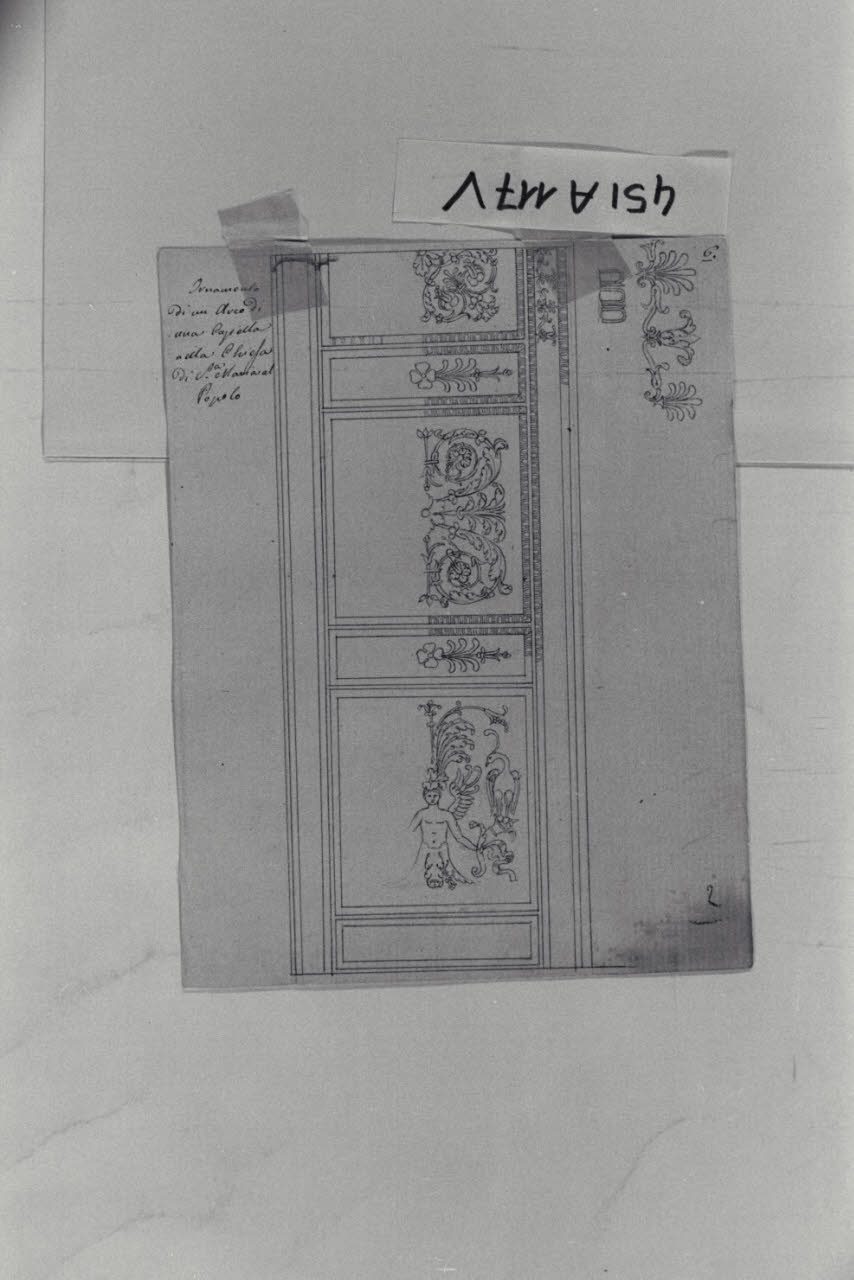 451 A 117 V
6.
Ornamento
Di un Arco di
una Capella
nella Chiesa
Di S.ta Maria al
Popolo
2